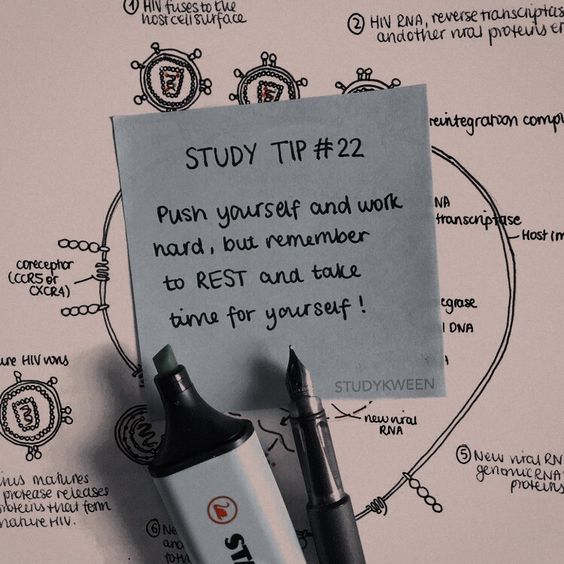 ① HIV fuses to the
host cell surface
② HIV RNA, reverse transcriptas
and other viral proteins en
reintegration compl
STUDY TIP #22
Push yourself and work
hard, but remember
to REST and take
time for yourself!
STUDYKWEEN
NA
transcriptase
Host im
coreceptor
(CCR5 or
CXCR4)
egrase
l DNA
A
ure HIV virons
new viral
RNA
⑤ New viral RN
genomic RNA
proteins
us matures
protease releases
proteins that form
mature HIV.
⑥ Ne
and
STA